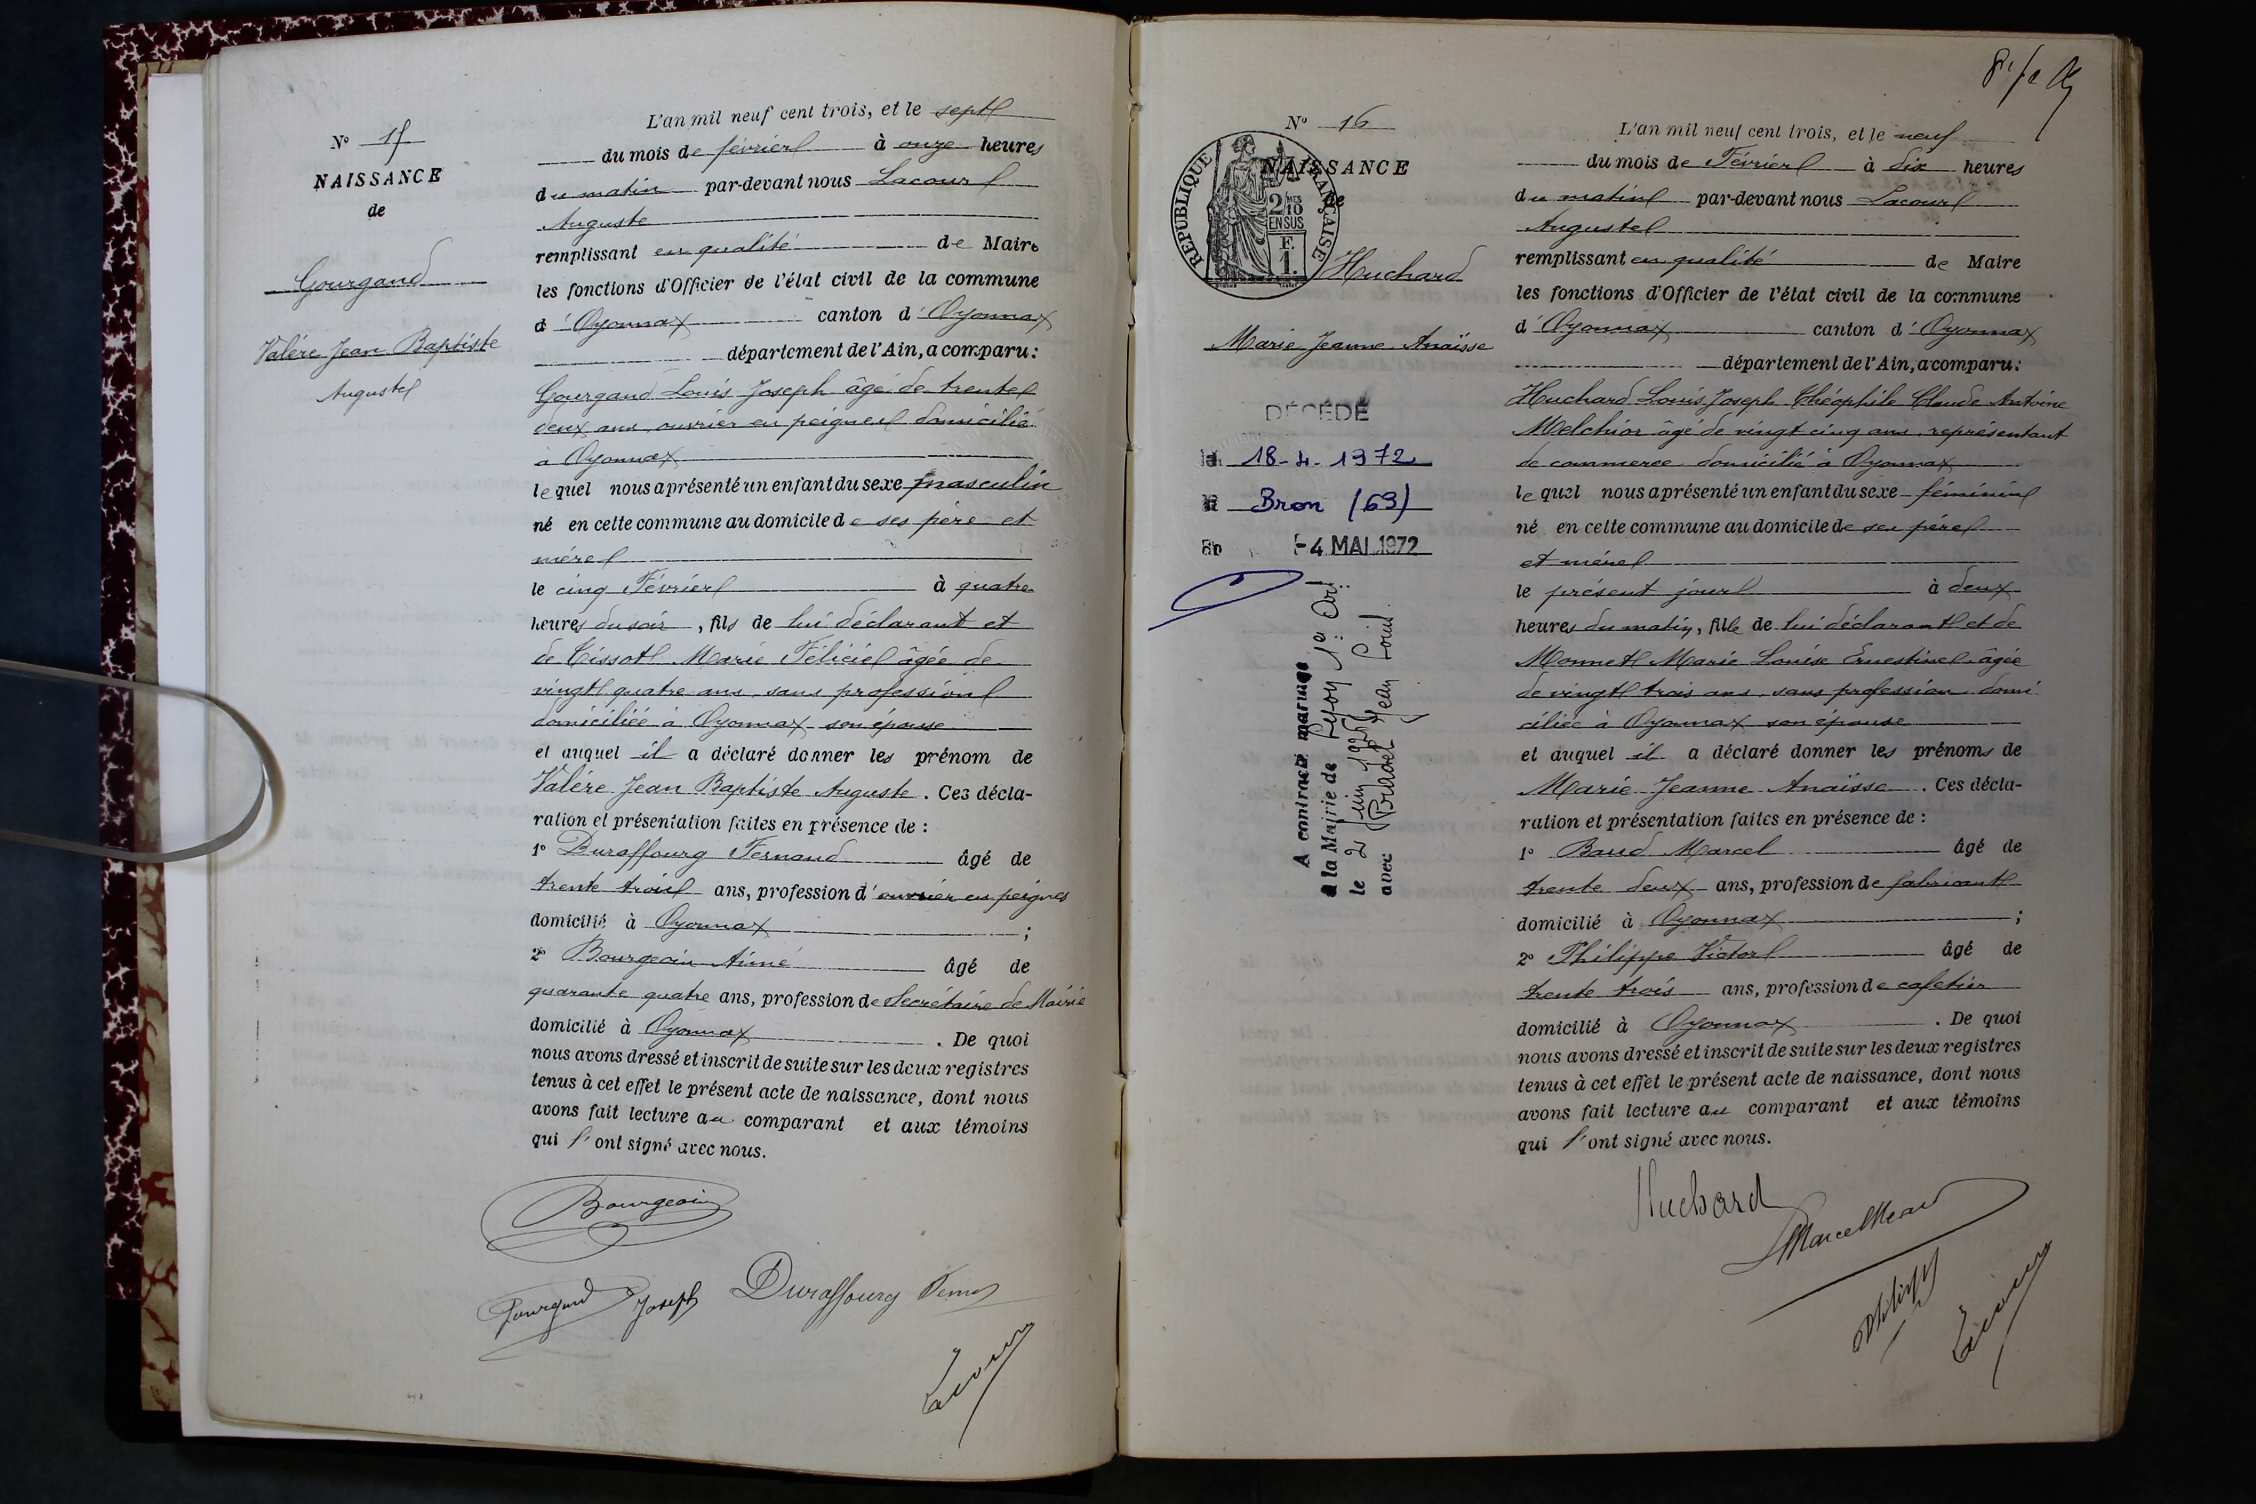 N° 15
NAISSANCE
de
Gourgand
Valére Jean Baptiste
Auguste
L'an mil neuf cent trois, et le sept
du mois de février à onze heures
du matin par-devant nous Lacour
Auguste
remplissant en qualité de Maire
les fonctions d'Officier de l'état civil de la commune
d'Oyonnax canton d'Oyonnax
département de l'Ain, a comparu:
Gourgand Louis Joseph âgé de trente
deux ans, ouvrier en peignes domicilié
à Oyonnax
lequel nous a présenté un enfant du sexe masculin
né en cette commune au domicile de ses père et
mère
le cinq Février à quatre
heures du soir, fils de lui déclarant et
de Tissot Marie Félicie âgée de
vingt quatre ans, sans profession
domiciliée à Oyonnax son épouse
et auquel il a déclaré donner les prénom de
Valére Jean Baptiste Auguste. Ces décla-
ration et présentation faites en présence de :
1° Duraffourg Fernand âgé de
trente trois ans, profession d'ouvrier en peignes
domicilié à Oyonnax ;
2° Bourgeoin Aimé âgé de
quarante quatre ans, profession de Secrétaire de Mairie
domicilié à Oyonnax. De quoi
nous avons dressé et inscrit de suite sur les deux registres
tenus à cet effet le présent acte de naissance, dont nous
avons fait lecture au comparant et aux témoins
qui l'ont signé avec nous.
Bourgeoin
Gourgand Joseph Duraffourg
Lacour
N° 16
NAISSANCE
de
RÉPUBLIQUE FRANÇAISE
2 MES
10
EN SUS
F.
1.
Huchard
Marie Jeanne Anaïsse
DÉCÉDÉ
18-4-1972
Bron (69)
-4 MAI 1972
A contracté mariage
à la Mairie de Lyon 1er Arr
le 2 Juin 1925
avec Jean Louis
L'an mil neuf cent trois, et le neuf
du mois de Février à dix heures
du matin par-devant nous Lacour
Auguste
remplissant en qualité de Maire
les fonctions d'Officier de l'état civil de la commune
d'Oyonnax canton d'Oyonnax
département de l'Ain, a comparu:
Huchard Louis Joseph Théophile Claude Antoine
Melchior âgé de vingt cinq ans, représentant
de commerce domicilié à Oyonnax
lequel nous a présenté un enfant du sexe féminin
né en cette commune au domicile de ses père
et mère
le présent jour à deux
heures du matin, fille de lui déclarant et de
Monnet Marie Louise Ernestine âgée
de vingt trois ans, sans profession domi
ciliée à Oyonnax son épouse
et auquel il a déclaré donner les prénoms de
Marie Jeanne Anaïsse. Ces décla-
ration et présentation faites en présence de :
1° Baud Marcel âgé de
trente deux ans, profession de fabricant
domicilié à Oyonnax ;
2° Philippe Victor âgé de
trente trois ans, profession de cafetier
domicilié à Oyonnax. De quoi
nous avons dressé et inscrit de suite sur les deux registres
tenus à cet effet le présent acte de naissance, dont nous
avons fait lecture au comparant et aux témoins
qui l'ont signé avec nous.
Huchard
Philippe
Lacour